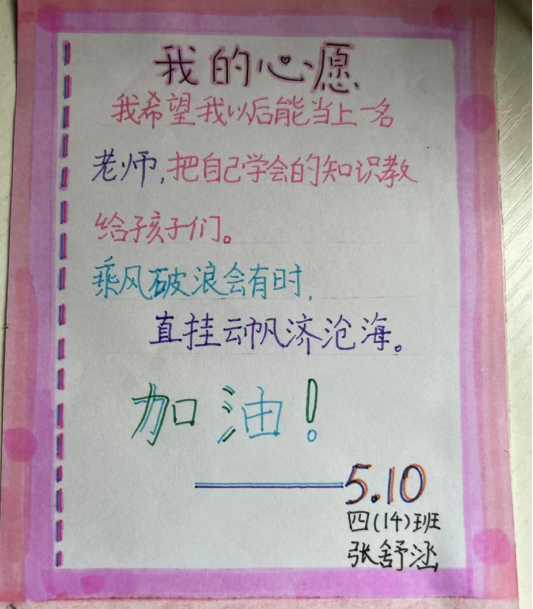 我的心愿
我希望我以后能当上一名
老师,把自己学会的知识教
给孩子们。
乘风破浪会有时,
直挂云帆济沧海。
加油!
——5.10
四(14)班
张舒涵